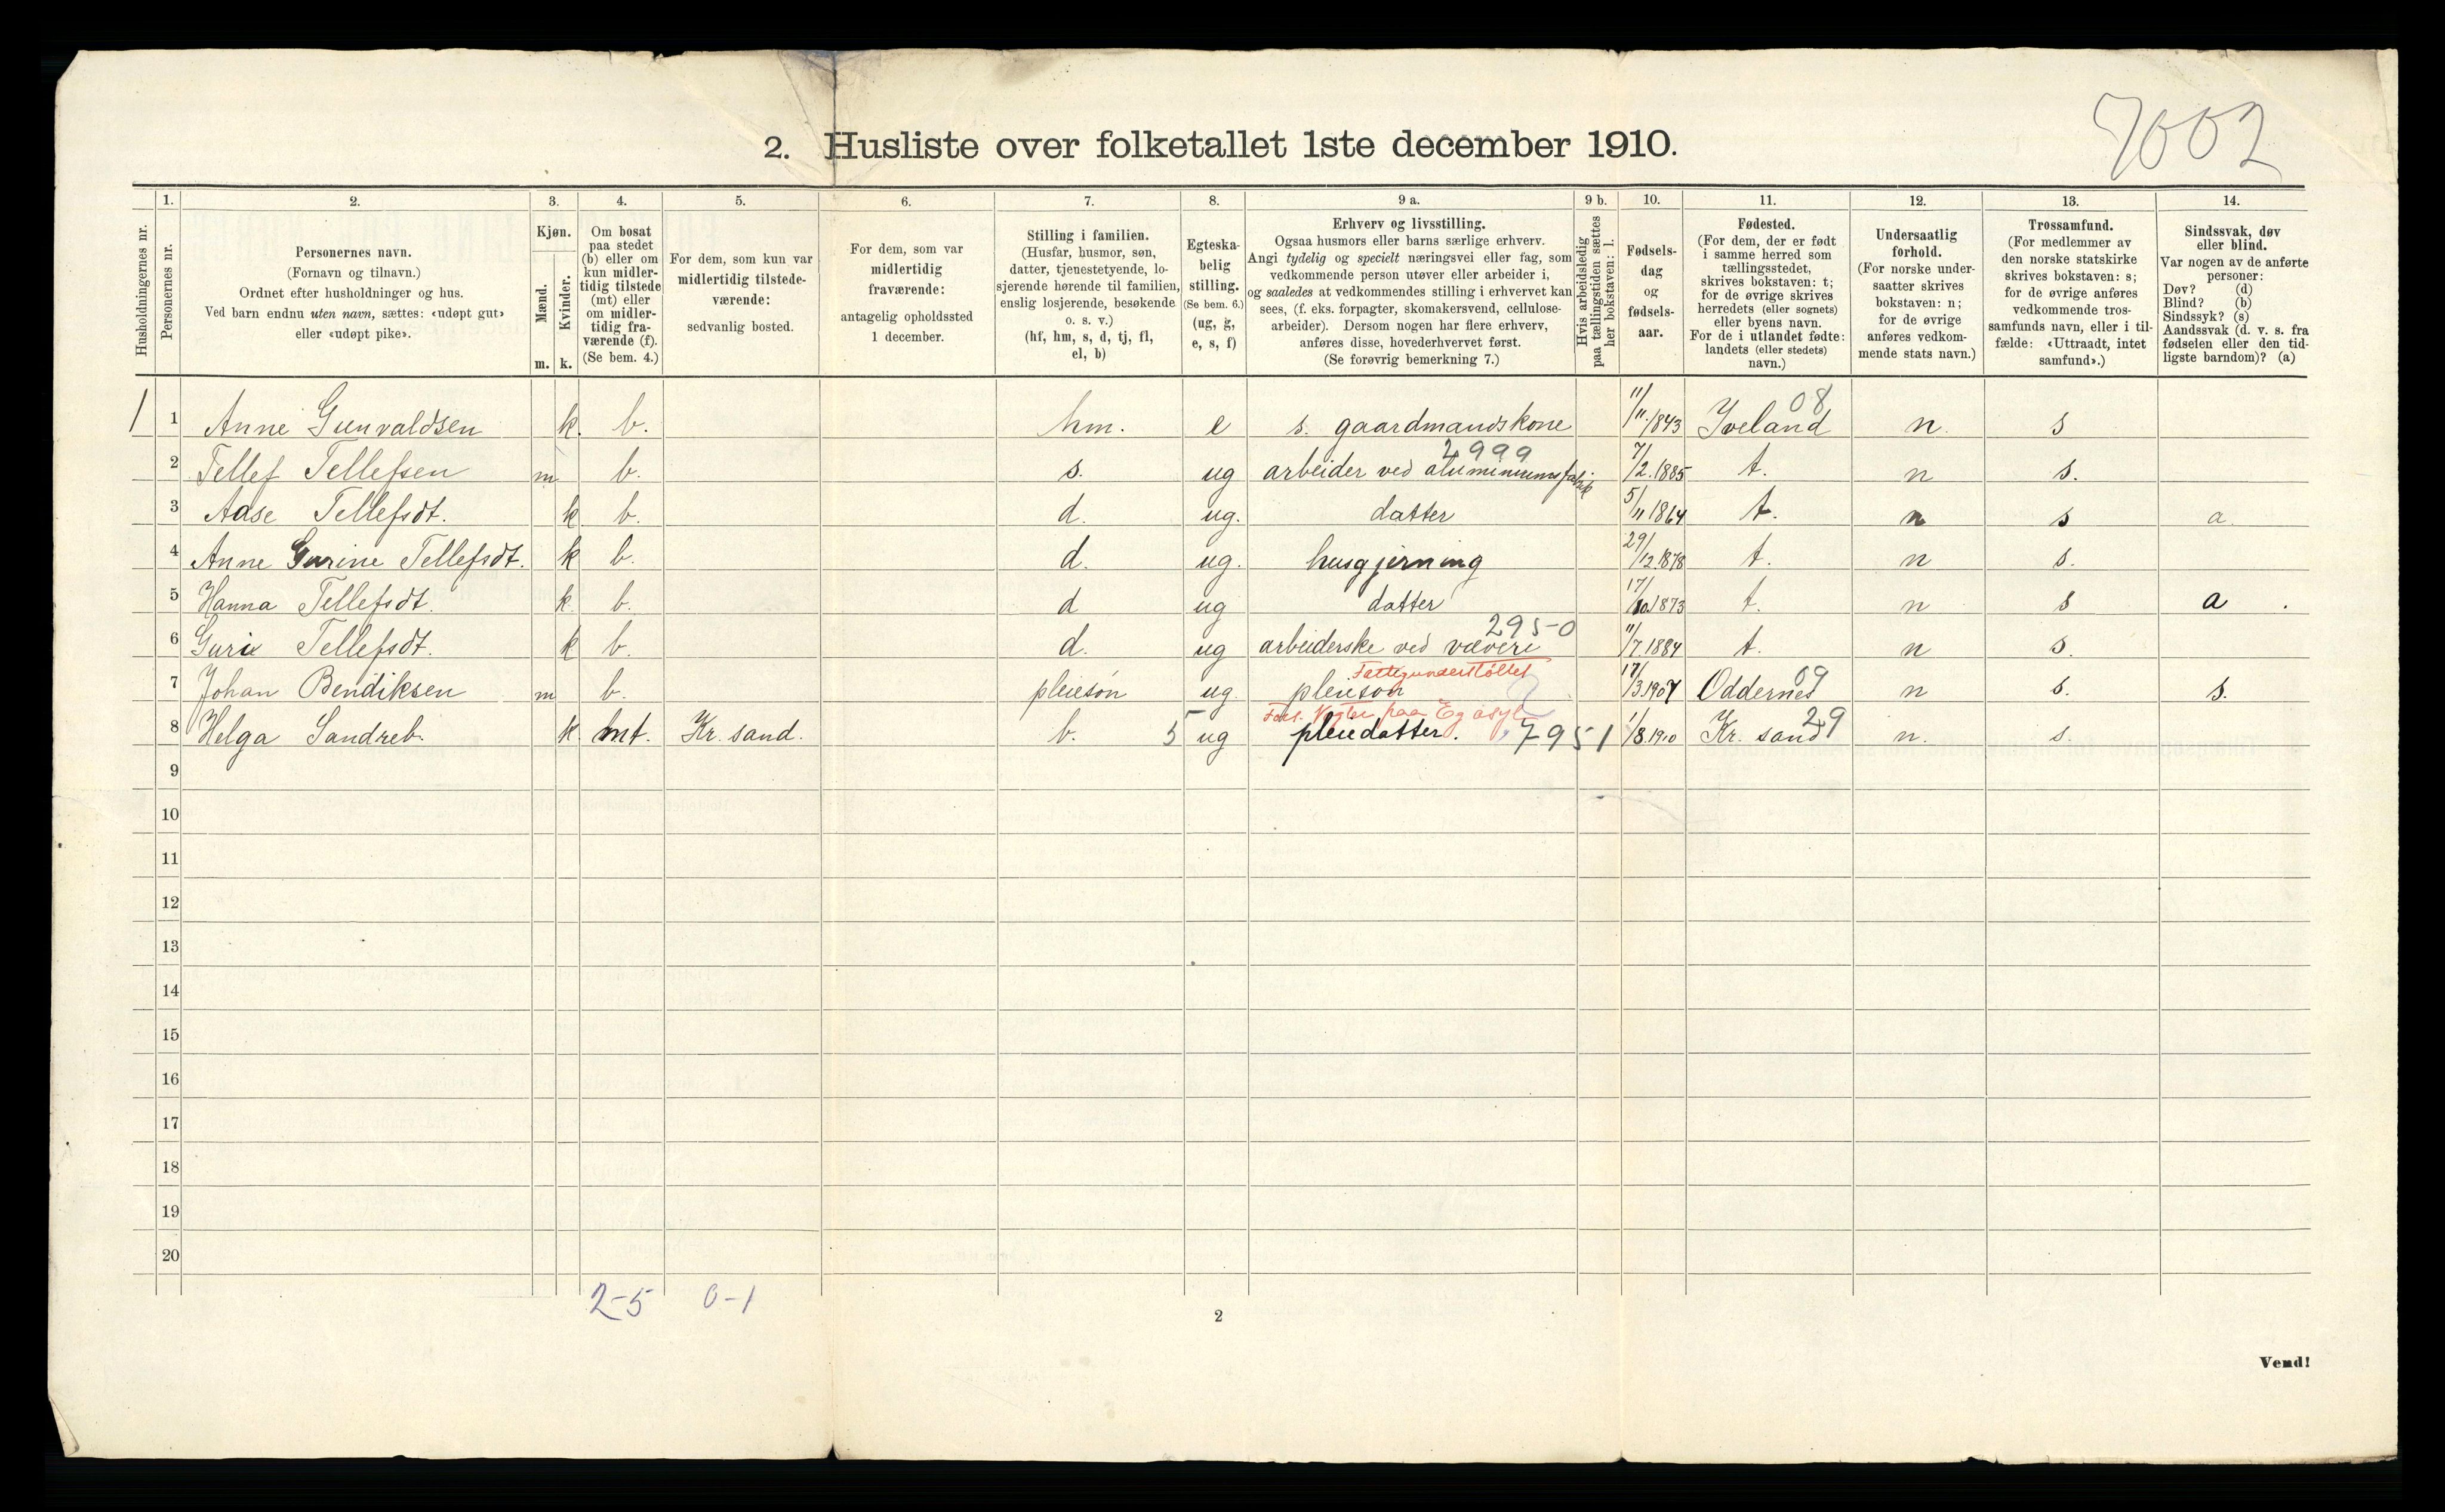 7002
2. Husliste over folketallet 1ste december 1910.
Husholdningernes nr.
1. Personernes nr.
2. Personernes navn.
(Fornavn og tilnavn.)
Ordnet efter husholdninger og hus.
Ved barn endnu uten navn, sættes: «udøpt gut»
eller «udøpt pike».
3. Kjøn.
Mænd. m.
Kvinder. k.
4. Om bosat
paa stedet
(b) eller om
kun midler-
tidig tilstede
(mt) eller
om midler-
tidig fra-
værende (f).
(Se bem. 4.)
5. For dem, som kun var
midlertidig tilstede-
værende:
sedvanlig bosted.
6. For dem, som var
midlertidig
fraværende:
antagelig opholdssted
1 december.
7. Stilling i familien.
(Husfar, husmor, søn,
datter, tjenestetyende, lo-
sjerende hørende til familien,
enslig losjerende, besøkende
o. s. v.)
(hf, hm, s, d, tj, fl,
el, b)
8. Egteska-
belig
stilling.
(Se bem. 6.)
(ug, g,
e, s, f)
9 a. Erhverv og livsstilling.
Ogsaa husmors eller barns særlige erhverv.
Angi tydelig og specielt næringsvei eller fag, som
vedkommende person utøver eller arbeider i,
og saaledes at vedkommendes stilling i erhvervet kan
sees, (f. eks. forpagter, skomakersvend, cellulose-
arbeider). Dersom nogen har flere erhverv,
anføres disse, hovederhvervet først.
(Se forøvrig bemerkning 7.)
9 b. Hvis arbeidsledig
paa tællingstiden sættes
her bokstaven: l.
10. Fødsels-
dag
og
fødsels-
aar.
11. Fødested.
(For dem, der er født
i samme herred som
tællingsstedet,
skrives bokstaven: t;
for de øvrige skrives
herredets (eller sognets)
eller byens navn.
For de i utlandet fødte:
landets (eller stedets)
navn.)
12. Undersaatlig
forhold.
(For norske under-
saatter skrives
bokstaven: n;
for de øvrige
anføres vedkom-
mende stats navn.)
13. Trossamfund.
(For medlemmer av
den norske statskirke
skrives bokstaven: s;
for de øvrige anføres
vedkommende tros-
samfunds navn, eller i til-
fælde: «Uttraadt, intet
samfund».)
14. Sindssvak, døv
eller blind.
Var nogen av de anførte
personer:
Døv? (d)
Blind? (b)
Sindssyk? (s)
Aandssvak (d. v. s. fra
fødselen eller den tid-
ligste barndom)? (a)
08
1 1 Anne Gunvaldsen k. b. hm. e s. gaardmandskone 11/11.1843 Iveland n. s
2999
2 Tellef Tellefsen m b. s. ug arbeider ved aluminiumsfabrik 7/2.1885 t. n s.
3 Aase Tellefsdt. k b. d. ug. datter 5/11 1864 t. n s a.
4 Anne Gurine Tellefsdt. k b. d. ug. husgjerning 29/12.1878 t. n s.
5 Hanna Tellefsdt. k. b. d ug datter 17/10.1873 t. n s a .
2950
6 Guri Tellefsdt. k b. d. ug arbeiderske ved væveri 11/7.1884 t. n s.
Fattigunderstöttet 09
7 Johan Bendiksen m b. pleiesön ug. pleiesön 17/3.1907 Oddernes n s. s.
Fars. Vogter paa Eg asyl 29
8 Helga Sandreb. k. mt. Kr. sand. b. 5 ug pleiedatter. 7951 1/8.1910 Kr. sand n. s.
9
10
11
12
13
14
15
16
17
18
19
20
2-5 0-1
2
Vend!